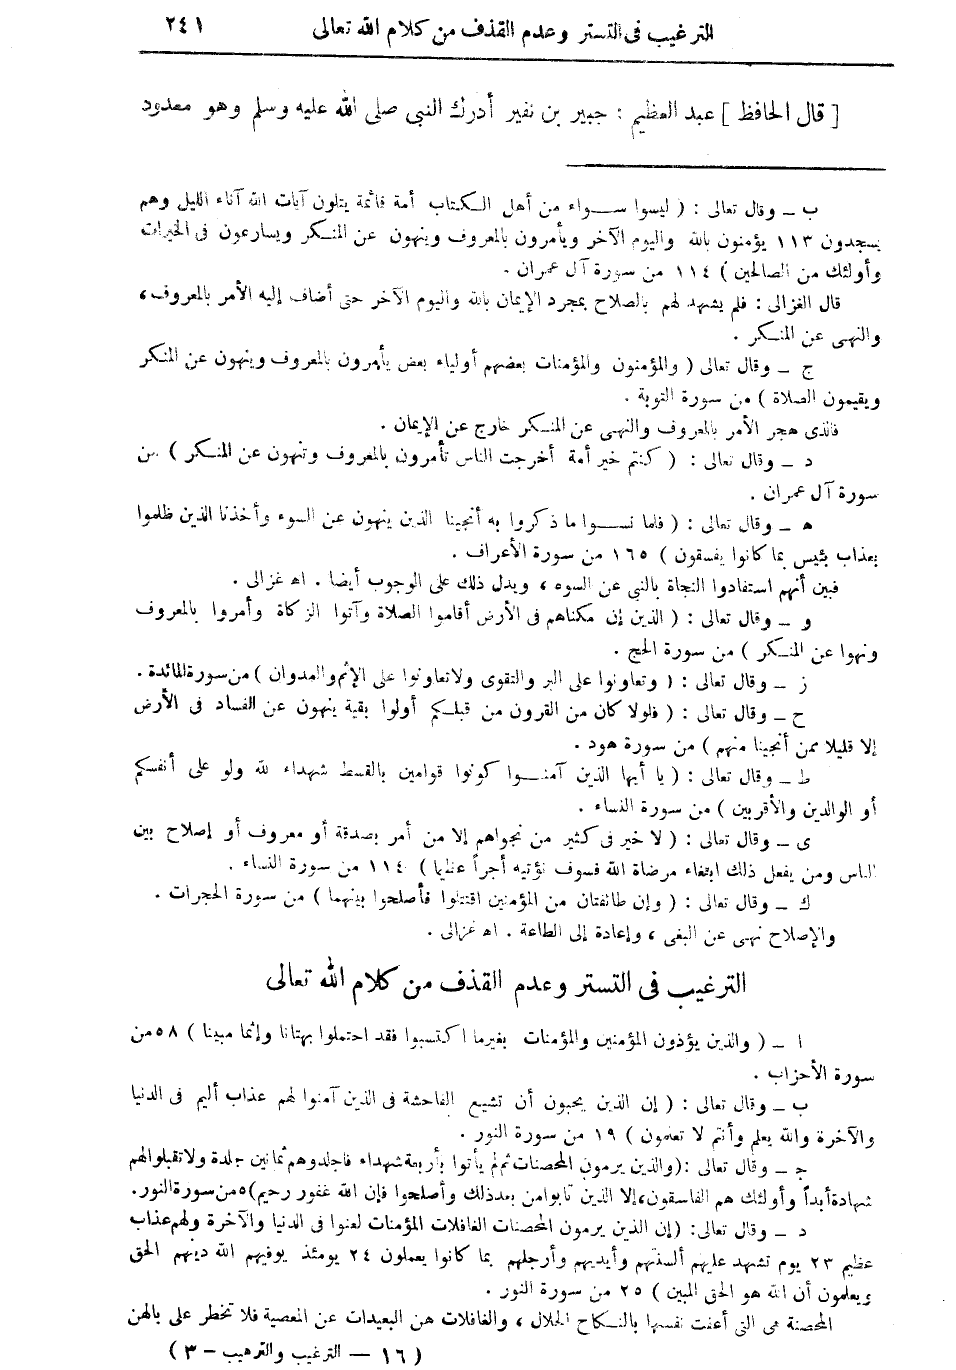 الترغيب فى التستر وعدم القذف من كلام الله تعالى ٢٤١
[ قال الحافظ ] عبد العظيم : جبير بن نفير أدرك النبى صلى الله عليه وسلم وهو معدود
ب ـ وقال تعالى : ( ليسوا سـواء من أهل الـكتاب أمة قائمة يتلون آيات الله آناء الليل وهم
يسجدون ١١٣ يؤمنون بالله واليوم الآخر ويأمرون بالمعروف وينهون عن المنـكر ويسارعون فى الخيرات
وأولئك من الصالحين ) ١١٤ من سورة آل عمران .
قال الغزالى : فلم يشهد لهم بالصلاح بمجرد الإيمان بالله واليوم الآخر حتى أضاف إليه الأمر بالمعروف ،
والنهى عن المنـكر .
ج ـ وقال تعالى ( والمؤمنون والمؤمنات بعضهم أولياء بعض يأمرون بالمعروف وينهون عن المنكر
ويقيمون الصلاة ) من سورة التوبة .
فالذى هجر الأمر بالمعروف والنهى عن المنـكر خارج عن الإيمان .
د ـ وقال تعالى : ( كنتم خير أمة أخرجت للناس تأمرون بالمعروف وتنهون عن المنـكر ) من
سورة آل عمران .
ه ـ وقال تعالى : ( فلما نسـوا ما ذكروا به أنجينا الذين ينهون عن السوء وأخذنا الذين ظلموا
بعذاب بئيس بما كانوا يفسقون ) ١٦٥ من سورة الأعراف .
فبين أنهم استفادوا النجاة بالنهى عن السوء ، ويدل ذلك على الوجوب أيضا . اه غزالى .
و ـ وقال تعالى : ( الذين إن مكناهم فى الأرض أقاموا الصلاة وآتوا الزكاة وأمروا بالمعروف
ونهوا عن المنـكر ) من سورة الحج .
ز ـ وقال تعالى : ( وتعاونوا على البر والتقوى ولا تعاونوا على الإثم والعدوان ) من سورة المائدة .
ح ـ وقال تعالى : ( فلولا كان من القرون من قبلـكم أولوا بقية ينهون عن الفساد فى الأرض
إلا قليلا ممن أنجينا منهم ) من سورة هود .
ط ـ وقال تعالى : ( يا أيها الذين آمنـوا كونوا قوامين بالقسط شهداء لله ولو على أنفسكم
أو الوالدين والأقربين ) من سورة النساء .
ى ـ وقال تعالى : ( لا خير فى كثير من نجواهم إلا من أمر بصدقة أو معروف أو إصلاح بين
الناس ومن يفعل ذلك ابتغاء مرضاة الله فسوف نؤتيه أجراً عظيما ) ١١٤ من سورة النساء .
ك ـ وقال تعالى : ( وإن طائفتان من المؤمنين اقتتلوا فأصلحوا بينهما ) من سورة الحجرات .
والإصلاح نهى عن البغى ، وإعادة إلى الطاعة . اه غزالى .
الترغيب فى التستر وعدم القذف من كلام الله تعالى
ا ـ ( والذين يؤذون المؤمنين والمؤمنات بغير ما اكتسبوا فقد احتملوا بهتانا وإثما مبينا ) ٥٨ من
سورة الأحزاب .
ب ـ وقال تعالى : ( إن الذين يحبون أن تشيع الفاحشة فى الذين آمنوا لهم عذاب أليم فى الدنيا
والآخرة والله يعلم وأنتم لا تعلمون ) ١٩ من سورة النور .
ج ـ وقال تعالى : (والذين يرمون المحصنات ثم لم يأتوا بأربعة شهداء فاجلدوهم ثمانين جلدة ولا تقبلوا لهم
شهادة أبداً وأولئك هم الفاسقون، إلا الذين تابوا من بعد ذلك وأصلحوا فإن الله غفور رحيم) ٥ من سورة النور.
د ـ وقال تعالى: (إن الذين يرمون المحصنات الغافلات المؤمنات لعنوا فى الدنيا والآخرة ولهم عذاب
عظيم ٢٣ يوم تشهد عليهم ألسنتهم وأيديهم وأرجلهم بما كانوا يعملون ٢٤ يومئذ يوفيهم الله دينهم الحق
ويعلمون أن الله هو الحق المبين ) ٢٥ من سورة النور .
المحصنة هى التى أعفت نفسها بالنـكاح الحلال ، والغافلات هن البعيدات عن المعصية فلا تخطر على بالهن
( ١٦ — الترغيب والترهيب — ٣ )